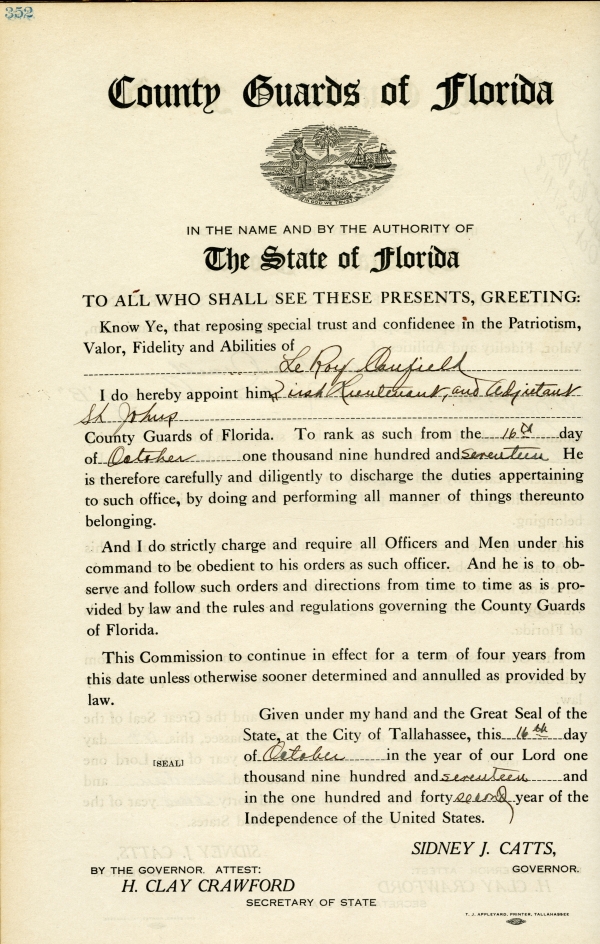 352
County Guards of Florida
IN GOD WE TRUST
IN THE NAME AND BY THE AUTHORITY OF
The State of Florida
TO ALL WHO SHALL SEE THESE PRESENTS, GREETING:
Know Ye, that reposing special trust and confidence in the Patriotism,
Valor, Fidelity and Abilities of
Le Roy Canfield
I do hereby appoint him, First Lieutenant, and Adjutant
St Johns
County Guards of Florida. To rank as such from the 16th day
of October one thousand nine hundred and seventeen He
is therefore carefully and diligently to discharge the duties appertaining
to such office, by doing and performing all manner of things thereunto
belonging.
And I do strictly charge and require all Officers and Men under his
command to be obedient to his orders as such officer. And he is to ob-
serve and follow such orders and directions from time to time as is pro-
vided by law and the rules and regulations governing the County Guards
of Florida.
This Commission to continue in effect for a term of four years from
this date unless otherwise sooner determined and annulled as provided by
law.
Given under my hand and the Great Seal of the
State, at the City of Tallahassee, this 16th day
[SEAL] of October in the year of our Lord one
thousand nine hundred and seventeen and
in the one hundred and forty second year of the
Independence of the United States.
SIDNEY J. CATTS,
BY THE GOVERNOR. ATTEST: GOVERNOR.
H. CLAY CRAWFORD
SECRETARY OF STATE
T. J. APPLEYARD, PRINTER, TALLAHASSEE